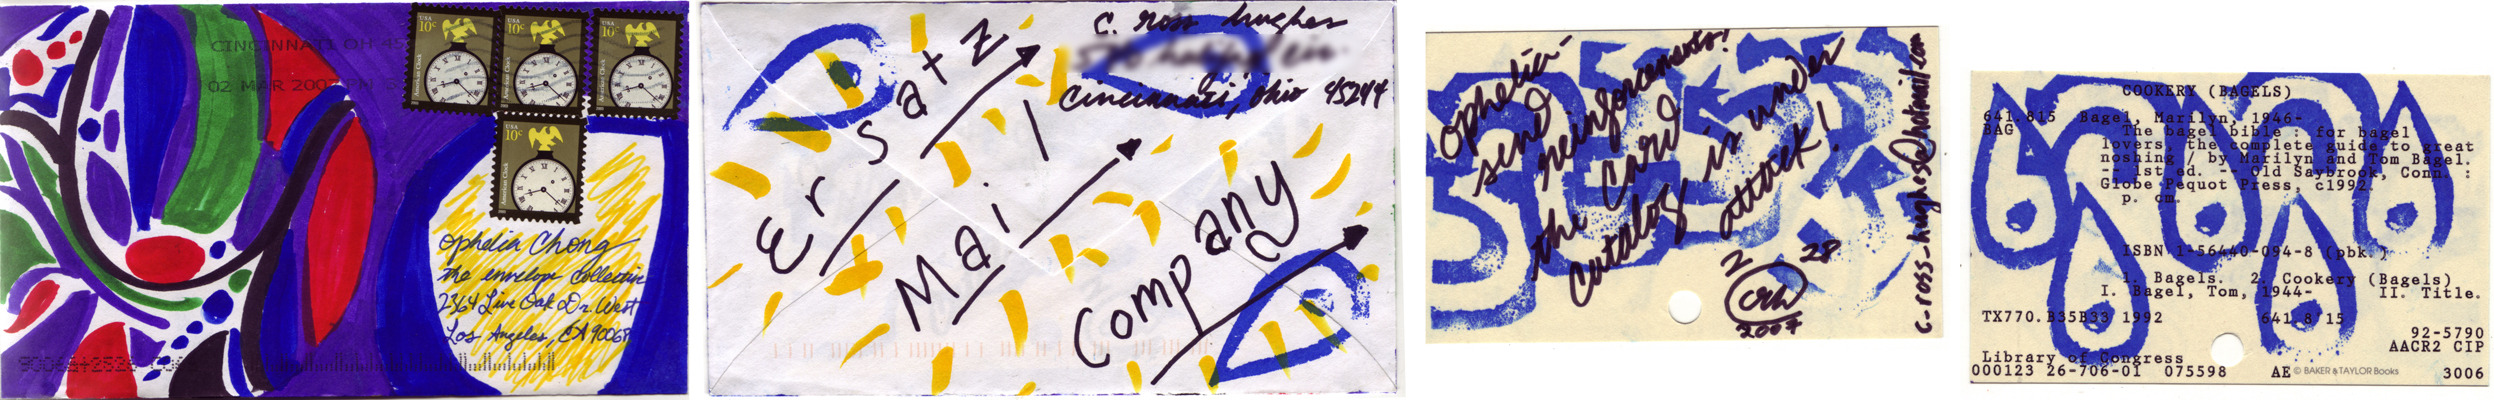 CINCINNATI OH 45
02 MAR 2007
USA
10c
American Clock
USA
10c
American Clock
USA
10c
American Clock
USA
10c
American Clock
Ophelia Chong
the envelope collective
2364 Live Oak Dr. West
Los Angeles, CA 90068
C. ross hughes
Cincinnati, Ohio 45244
Ersatz
Mail
Company
Ophelia-
send
reinforcements!
the Card
Catalog is under
attack!
2 28
crh
2007
c-ross-hughes@hotmail.com
COOKERY (BAGELS)
641.815 Bagel, Marilyn, 1946-
BAG The bagel bible : for bagel
lovers, the complete guide to great
noshing / by Marilyn and Tom Bagel.
-- 1st ed. -- Old Saybrook, Conn. :
Globe Pequot Press, c1992.
p. cm.
ISBN 1-56440-094-8 (pbk.)
1. Bagels. 2. Cookery (Bagels)
I. Bagel, Tom, 1944- II. Title.
TX770.B35B33 1992 641.8'15
92-5790
AACR2 CIP
Library of Congress
000123 26-706-01 075598 AE © BAKER & TAYLOR Books 3006